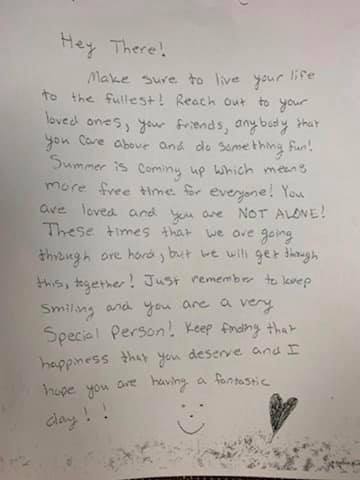 Hey There!
Make sure to live your life
to the fullest! Reach out to your
loved ones, your friends, anybody that
you care about and do something fun!
Summer is coming up which means
more free time for everyone! You
are loved and you are NOT ALONE!
These times that we are going
through are hard, but we will get though
this, together! Just remember to keep
smiling and you are a very
special person! Keep finding that
happiness that you deserve and I
hope you are having a fantastic
day!!